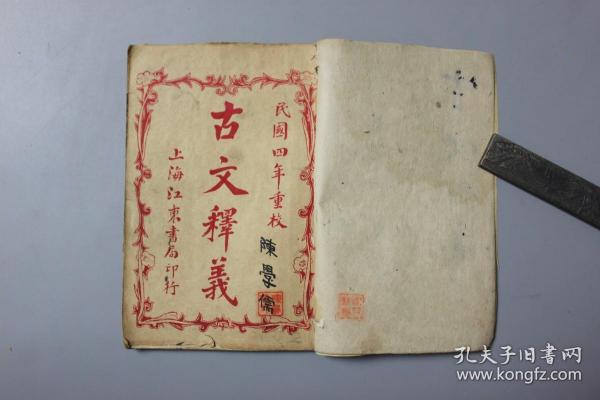 民國四年重校
古文釋義
上海江東書局印行
陳學儒
孔夫子旧书网
www.kongfz.com